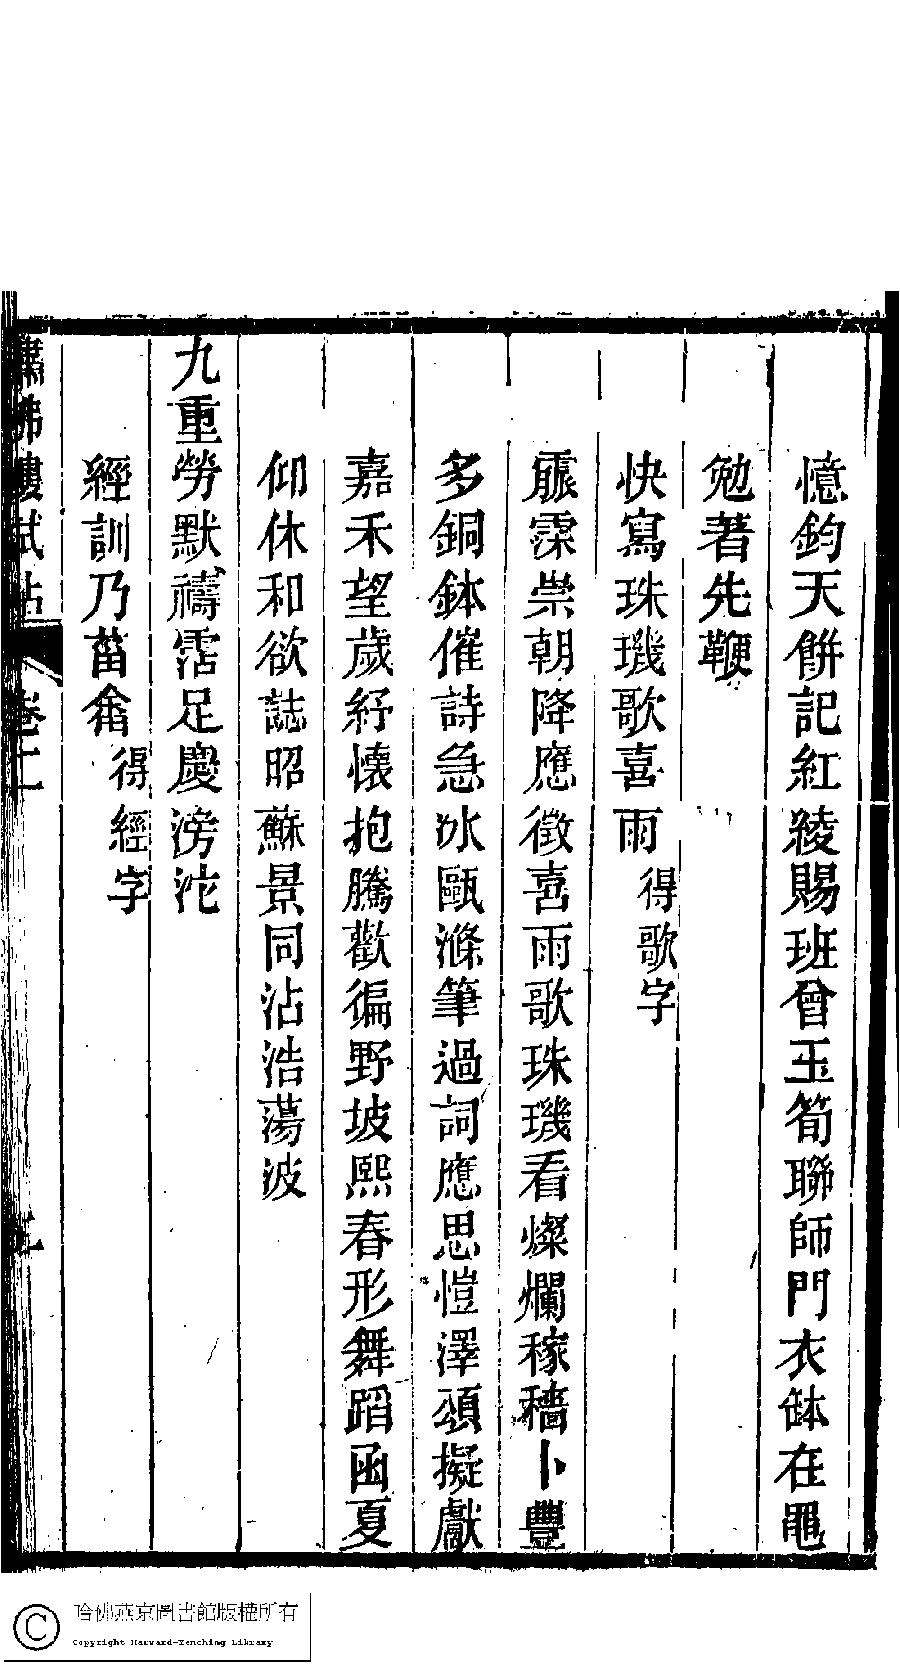 憶鈞天餅記紅綾賜班曾玉筍聯師門衣缽在黽
勉著先鞭
快寫珠璣歌喜雨得歌字
霡霂崇朝降應徵喜雨歌珠璣看燦爛稼穡卜豐
多銅鉢催詩急冰甌滌筆過詞應思愷澤頌擬獻
嘉禾望歲紓懷抱騰歡徧野坡熙春形舞蹈函夏
仰休和欲誌昭蘇景同沾浩蕩波
九重勞默禱霑足慶滂沱
經訓乃菑畬得經字
繡佛樓試帖 卷二 九
哈佛燕京圖書館版權所有
Copyright Harvard-Yenching Library